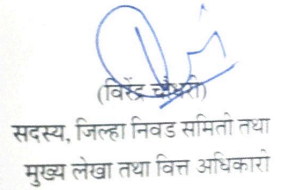 (विरेंद्र चौधरी)
सदस्य, जिल्हा निवड समिती तथा
मुख्य लेखा तथा वित्त अधिकारी